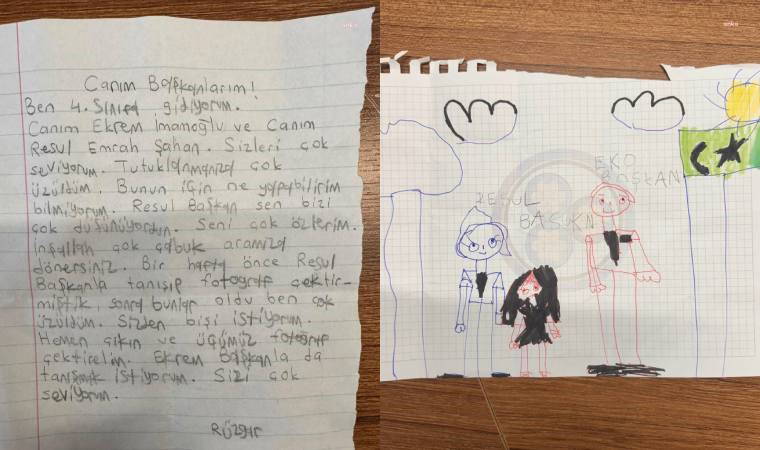 Canım Başkanlarım!
Ben 4. Sınıfa gidiyorum.
Canım Ekrem İmamoğlu ve Canım
Resul Emrah Şahan. Sizleri çok
seviyorum. Tutuklanmanıza çok
üzüldüm. Bunun için ne yapabilirim
bilmiyorum. Resul Başkan sen bizi
çok düşünüyordun. Seni çok özlerim.
inşallah çok çabuk aramıza
dönersiniz. Bir hafta önce Resul
Başkanla tanışıp fotoğraf çektir-
miştik, sonra bunlar oldu ben çok
üzüldüm. Sizden bişi istiyorum.
Hemen çıkın ve üçümüz fotoğraf
çektirelim. Ekrem Başkanla da
tanışmak istiyorum. Sizi çok
seviyorum.
Rüzgar
anka
EKO
BAŞKAN
RESUL
BAŞKAN
anka